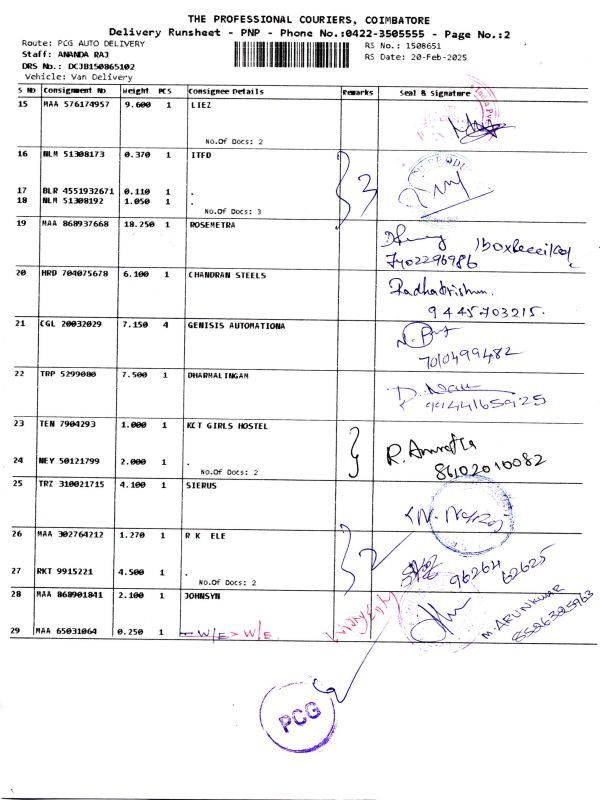 THE PROFESSIONAL COURIERS, COIMBATORE
Delivery Runsheet - PNP - Phone No.:0422-3505555 - Page No.:2
Route: PCG AUTO DELIVERY
RS No.: 1508651
Staff: ANANDA RAJ
RS Date: 20-Feb-2025
DRS No.: DCJB150865102
Vehicle: Van Delivery
S No Consignment No Weight PCS Consignee Details Remarks Seal & Signature
15 MAA 576174957 9.600 1 LIEZ
No.Of Docs: 2
16 NLM 51308173 0.370 1 ITFD
17 BLR 4551932671 0.110 1 .
18 NLM 51308192 1.050 1 .
No.Of Docs: 3
3
19 MAA 868937668 18.250 1 ROSEMETRA
7402296986
20 HRD 704075678 6.100 1 CHANDRAN STEELS
Radhakrishnan.
9445703215.
21 CGL 20032029 7.150 4 GENISIS AUTOMATIONA
7010499482
22 TRP 5299080 7.500 1 DHARMALINGAM
9944165925
23 TEN 7904293 1.000 1 KCT GIRLS HOSTEL
R. Amrutha
24 NEY 50121799 2.000 1 .
No.Of Docs: 2
86102010082
25 TRZ 310021715 4.100 1 SIERUS
26 MAA 302764212 1.270 1 R K ELE
2
27 RKT 9915221 4.500 1 .
No.Of Docs: 2
96264
62625
28 MAA 868901841 2.100 1 JOHNSYN
M. ARUNKUMAR
29 MAA 65031064 0.250 1 W/E > W/E
PCG